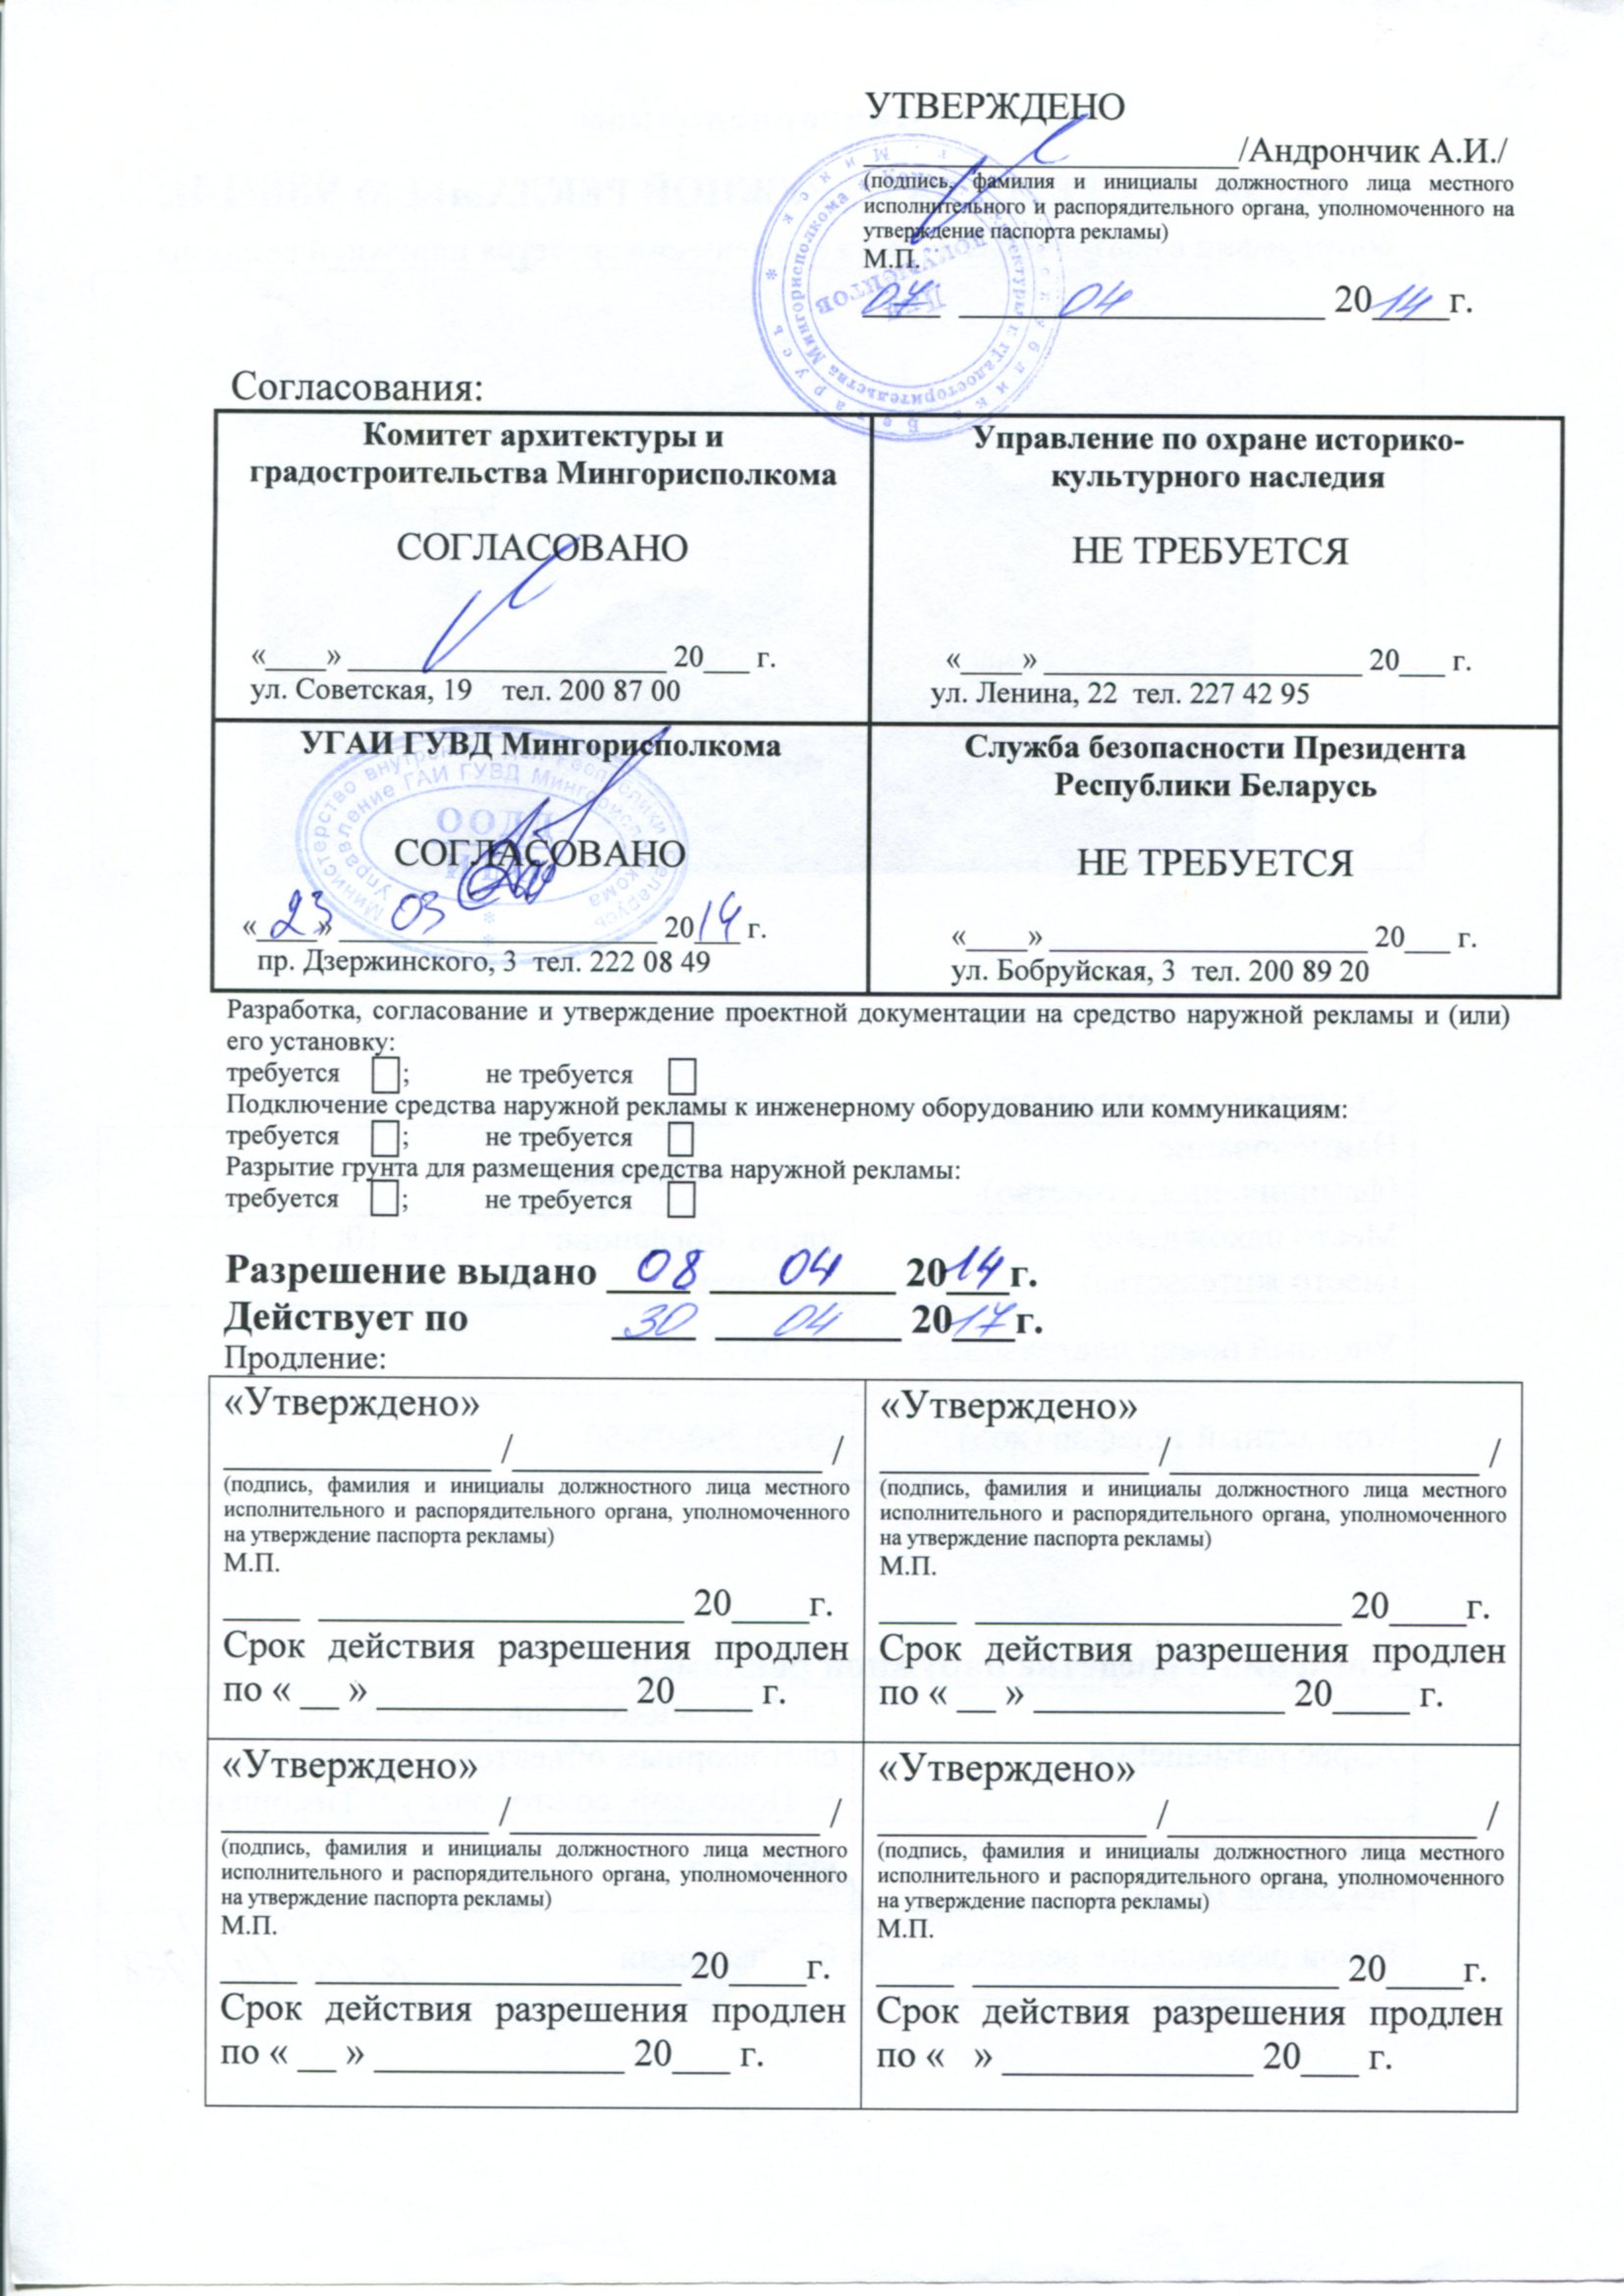 УТВЕРЖДЕНО
____________________/Андрончик А.И./
(подпись, фамилия и инициалы должностного лица местного
исполнительного и распорядительного органа, уполномоченного на
утверждение паспорта рекламы)
М.П.
07 04 2014г.
Согласования:
Комитет архитектуры и
градостроительства Мингорисполкома
СОГЛАСОВАНО
«____» ____________________ 20___ г.
ул. Советская, 19 тел. 200 87 00
Управление по охране историко-
культурного наследия
НЕ ТРЕБУЕТСЯ
«____» ____________________ 20___ г.
ул. Ленина, 22 тел. 227 42 95
УГАИ ГУВД Мингорисполкома
СОГЛАСОВАНО
«23» 03 2014 г.
пр. Дзержинского, 3 тел. 222 08 49
Служба безопасности Президента
Республики Беларусь
НЕ ТРЕБУЕТСЯ
«____» ____________________ 20___ г.
ул. Бобруйская, 3 тел. 200 89 20
Разработка, согласование и утверждение проектной документации на средство наружной рекламы и (или)
его установку:
требуется ☐; не требуется ☐
Подключение средства наружной рекламы к инженерному оборудованию или коммуникациям:
требуется ☐; не требуется ☐
Разрытие грунта для размещения средства наружной рекламы:
требуется ☐; не требуется ☐
Разрешение выдано 08 04 2014г.
Действует по 30 04 2017г.
Продление:
«Утверждено»
______________ /________________ /
(подпись, фамилия и инициалы должностного лица местного
исполнительного и распорядительного органа, уполномоченного
на утверждение паспорта рекламы)
М.П.
____ ___________________ 20____г.
Срок действия разрешения продлен
по « __ » _____________ 20____ г.
«Утверждено»
______________ /________________ /
(подпись, фамилия и инициалы должностного лица местного
исполнительного и распорядительного органа, уполномоченного
на утверждение паспорта рекламы)
М.П.
____ ___________________ 20____г.
Срок действия разрешения продлен
по « __ » _____________ 20____ г.
«Утверждено»
______________ /________________ /
(подпись, фамилия и инициалы должностного лица местного
исполнительного и распорядительного органа, уполномоченного
на утверждение паспорта рекламы)
М.П.
____ ___________________ 20____г.
Срок действия разрешения продлен
по « __ » _____________ 20___ г.
«Утверждено»
______________ /________________ /
(подпись, фамилия и инициалы должностного лица местного
исполнительного и распорядительного органа, уполномоченного
на утверждение паспорта рекламы)
М.П.
____ ___________________ 20____г.
Срок действия разрешения продлен
по « » _____________ 20___ г.